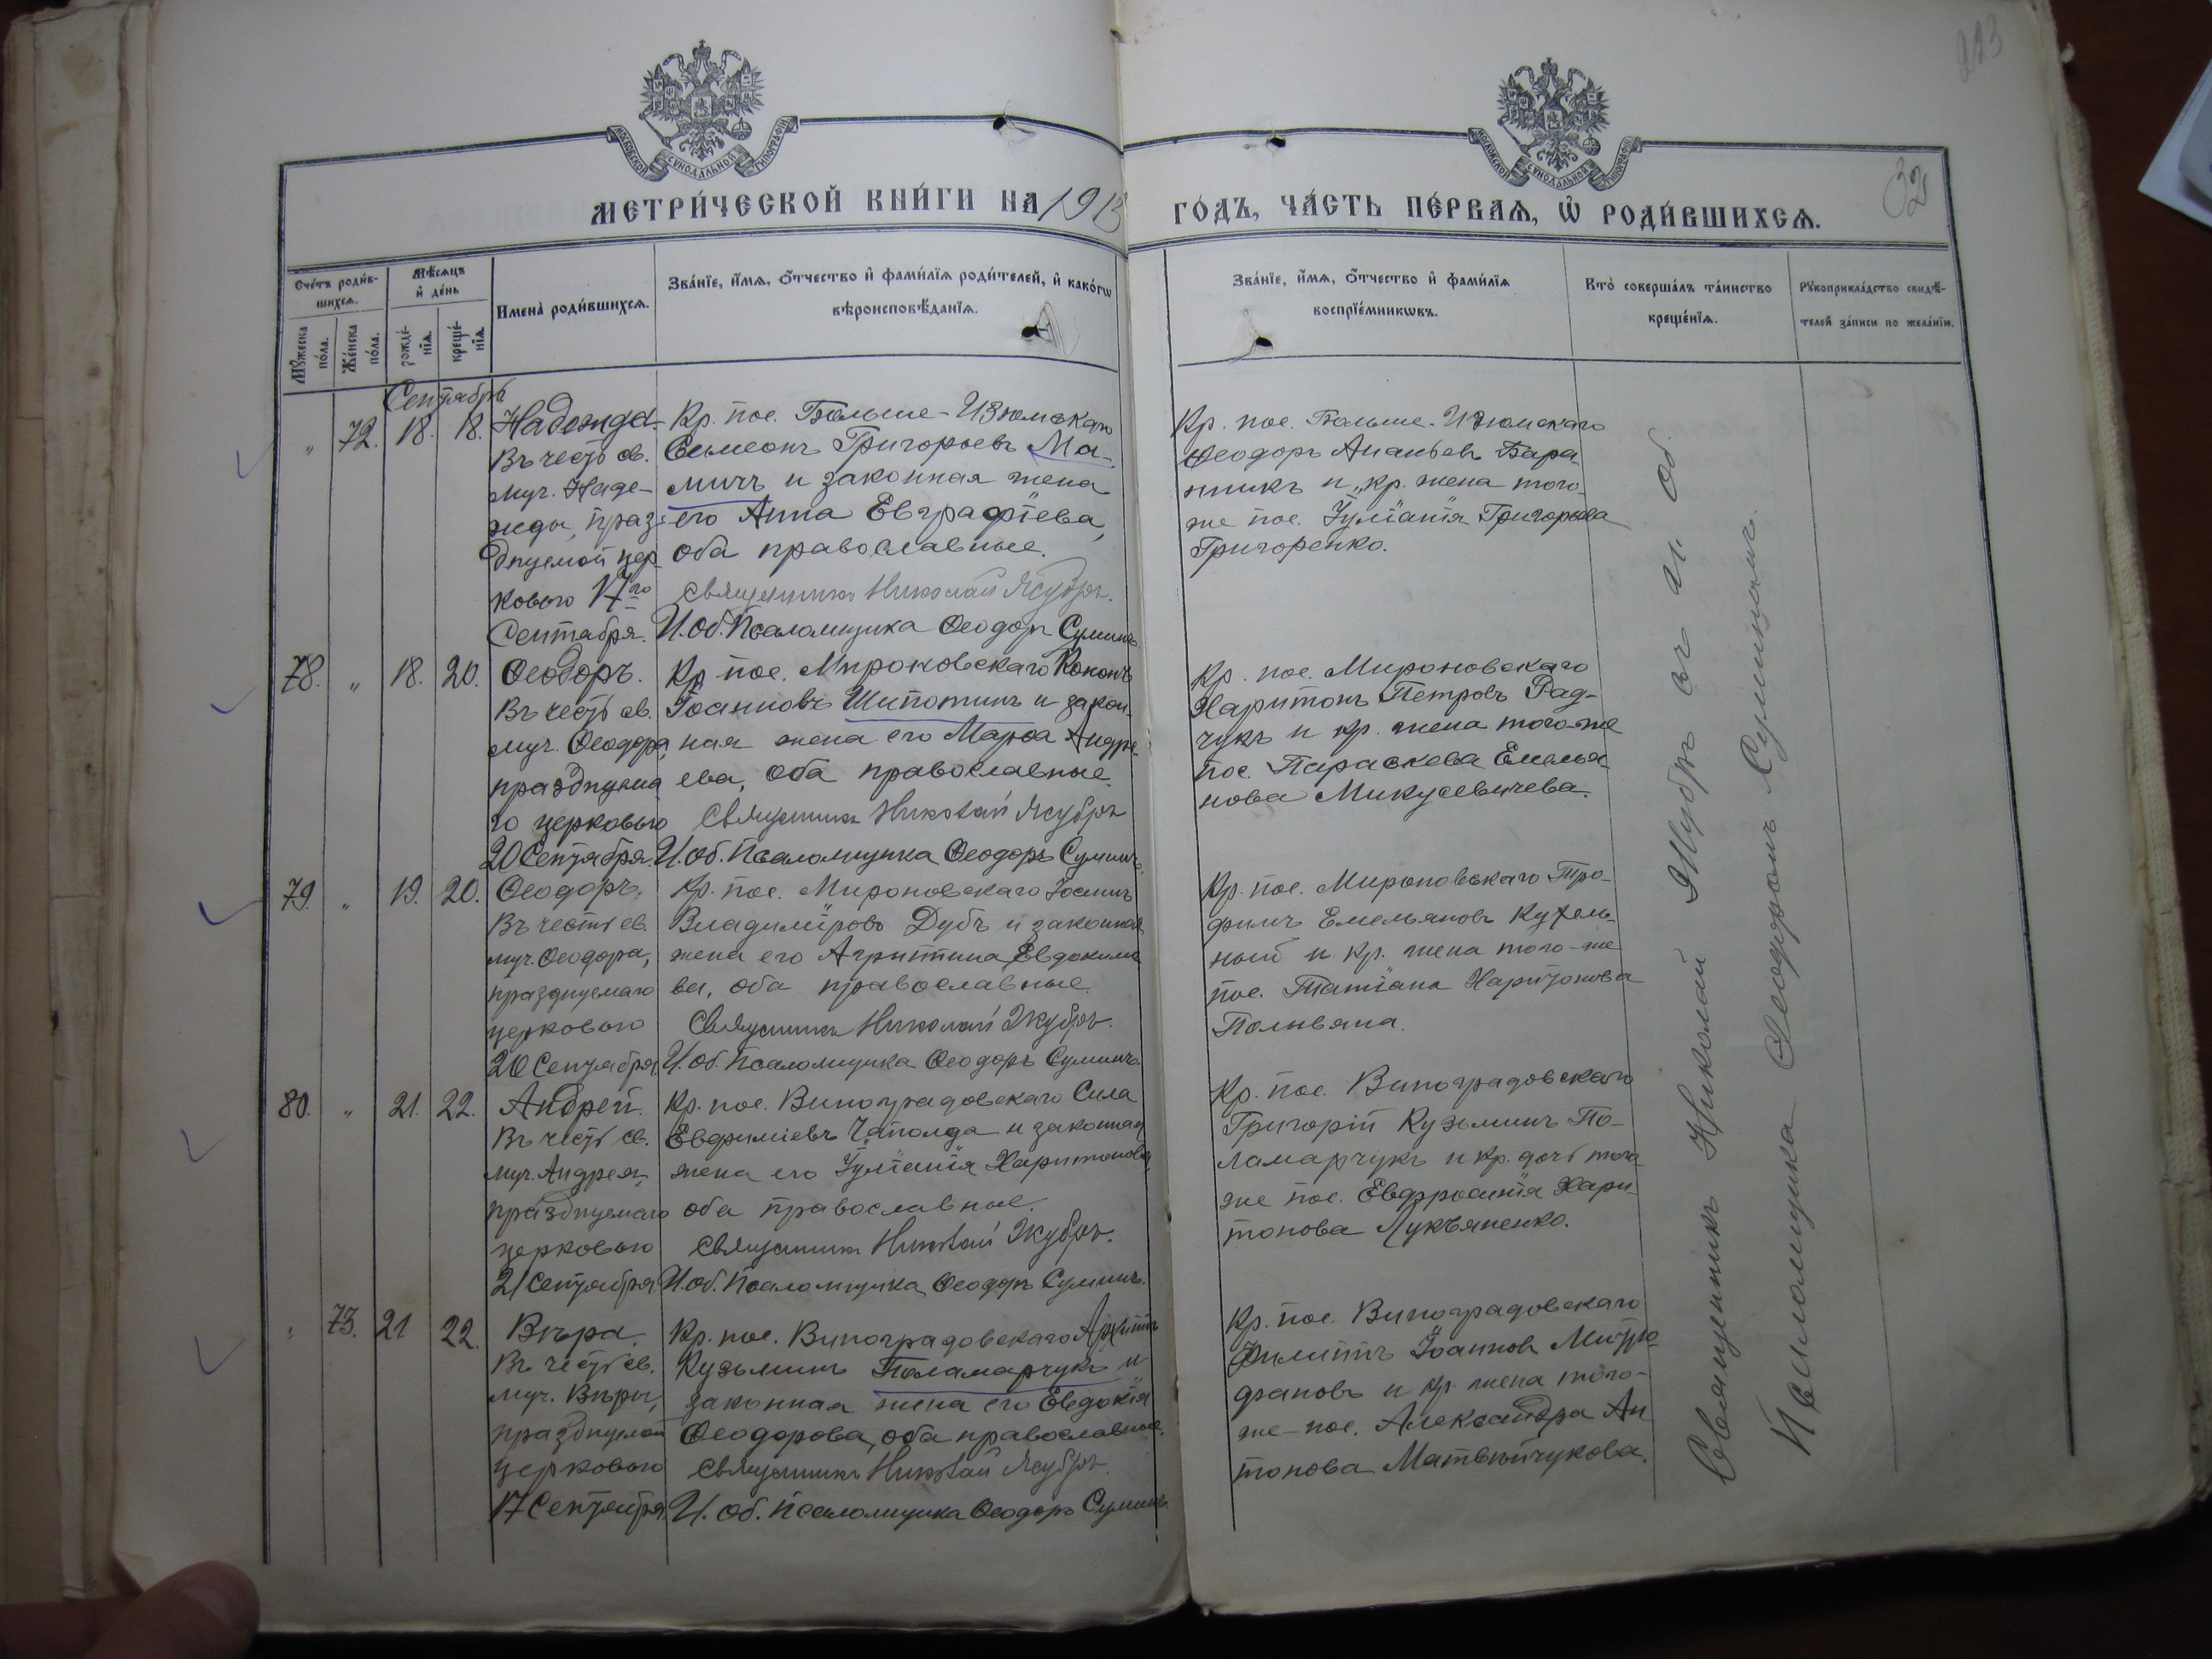 213
МОСКОВСКОЙ СѴНОДАЛЬНОЙ ТИПОГРАФІИ
МОСКОВСКОЙ СѴНОДАЛЬНОЙ ТИПОГРАФІИ
32
МЕТРИ́ЧЕСКОЙ КНИ́ГИ НА 1913 ГО́ДЪ, ЧА́СТЬ ПЕ́РВАѦ, Ѡ҆ РОДИ́ВШИХСѦ.
Сче́тъ роди́в-
шихсѧ.
Мꙋ́жеска
по́ла.
Же́нска
по́ла.
Мѣ́сѧцъ
и҆ де́нь
рожде́-
нїѧ.
креще́-
нїѧ.
Имена̀ роди́вшихсѧ.
Зва́нїе, и҆́мѧ, ѻ҆́тчество и҆ фами́лїѧ роди́телей, и҆ како́гѡ
вѣроисповѣ́данїѧ.
Зва́нїе, и҆́мѧ, ѻ҆́тчество и҆ фами́лїѧ
воспрїе́мникѡвъ.
Кто̀ соверша́лъ та́инство
креще́нїѧ.
Рꙋкоприкла́дство свидѣ́-
телей за́писи по жела́нїю.
Сентябрь
" 72. 18. 18. Надежда
Въ честь св.
муч. Наде-
жды, праз-
днуемой цер-
ковью 17го
Сентября.
Кр. пос. Больше-Изюмскаго
Симеонъ Григорьевъ Ма-
мичъ и законная жена
его Анна Евграфіева,
оба православные.
Священникъ Николай Якубръ.
И. Об. Псаломщика Ѳеодоръ Сумимъ
Кр. пос. Больше-Изюмскаго
Ѳеодоръ Ананьевъ Бара-
нникъ и кр. жена того-
же пос. Іуліанія Григорьева
Григоренко.
78. " 18. 20. Ѳеодоръ.
Въ честь св.
муч. Ѳеодора,
празднуема
го церковью
20 Сентября.
Кр. пос. Мироновскаго Кононъ
Іоанновъ Шипотинъ и закон-
ная жена его Марѳа Андре-
ева, оба православные.
Священникъ Николай Якубръ
И. Об. Псаломщика Ѳеодоръ Сумимъ.
Кр. пос. Мироновскаго
Харитонъ Петровъ Рад-
чукъ и кр. жена того-же
пос. Параскева Емелья-
нова Микусевичева.
79. " 19. 20. Ѳеодоръ.
Въ честь св.
муч. Ѳеодора,
празднуемаго
церковью
20 Сентября.
Кр. пос. Мироновскаго Іоаннъ
Владиміровъ Дубъ и законная
жена его Агриппина Евдокимо
ва, оба православные.
Священникъ Николай Якубръ.
И. Об. Псаломщика Ѳеодоръ Сумимъ.
Кр. пос. Мироновскаго Тро-
фимъ Емельяновъ
и кр. жена того-же
пос. Татіана Харитонова
Поливяна.
80. " 21. 22. Андрей.
Въ честь св.
муч. Андрея,
празднуемаго
церковью
21 Сентября.
Кр. пос. Виноградовскаго Сила
Евфиміевъ Чаполда и законная
жена его Іуліанія Харитонова,
оба православные.
Священникъ Николай Якубръ.
И. Об. Псаломщика Ѳеодоръ Сумимъ.
Кр. пос. Виноградовскаго
Григорій Кузьминъ По-
ламарчукъ и кр. дочь того
же пос. Евфросинія Хари-
тонова Лукьяненко.
" 73. 21 22. Вѣра.
Въ честь св.
муч. Вѣры,
празднуемой
церковью
17 Сентября
Кр. пос. Виноградовскаго Архипъ
Кузьминъ Поламарчукъ и
законная жена его Евдокія
Ѳеодорова, оба православные.
Священникъ Николай Якубръ.
И. Об. Псаломщика Ѳеодоръ Сумимъ.
Кр. пос. Виноградовскаго
Филиппъ Іоанновъ Митро-
фановъ и кр. жена того-
же-пос. Александра Ан-
тонова Матвѣйчукова.
Священникъ Николай Якубръ съ и. об.
Псаломщика Ѳеодоромъ Сумимымъ.